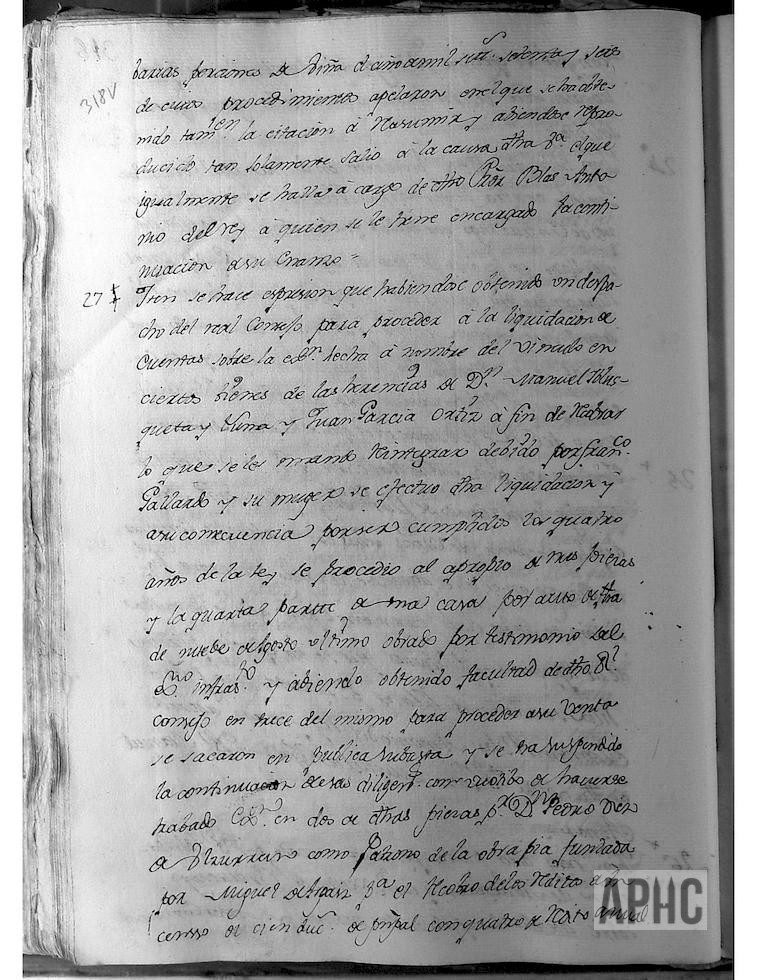 318
318V
barias porciones de viña el año de mil setts. setenta y seis
de cuios procedimientos apelaron en el que se ha obte-
nido tamien la citacion à y abiendose repro-
ducido tan solamente salio à la causa dha Sra. el que
igualmente se halla à cargo de dho Prõr Blas Anto-
nio del rey à quien se le tiene encargado la conti-
nuacion de su
27 Iten se hace espresion que habiendose obtenido un despa-
cho del real Consejo para proceder à la liquidacion de
Cuentas sobre la exon. hecha à nombre del Vinculo en
ciertos bienes de las herencias de Dn. Manuel
y y Juan Garcia Ortiz à fin de recobrar
lo que se les mandò reintegrar debido por Franco.
Gallardo y su muger se efectuo dha liquidacion y
a su consecuencia por ser cumplidos los quatro
años de la ley se procedio al aproprio de tres piezas
y la quarta parte de una casa por auto de dha
de nuebe de Agosto ultimo obrado por testimonio del
esno. infraso. y abiendo obtenido facultad de dho Rl.
consejo en trece del mismo para proceder a su venta
se sacaron en publica subasta y se ha suspendido
la continuacion de sus diligens. con motibo de haverse
trabado Exon. en dos de dhas piezas pr. Dn. Pedro
de como Patrono de la obra pia fundada
por Miguel de pa. el recobro de los reditos de un
censso de cien duc. de prinpal con quatro de redito annual
APHC